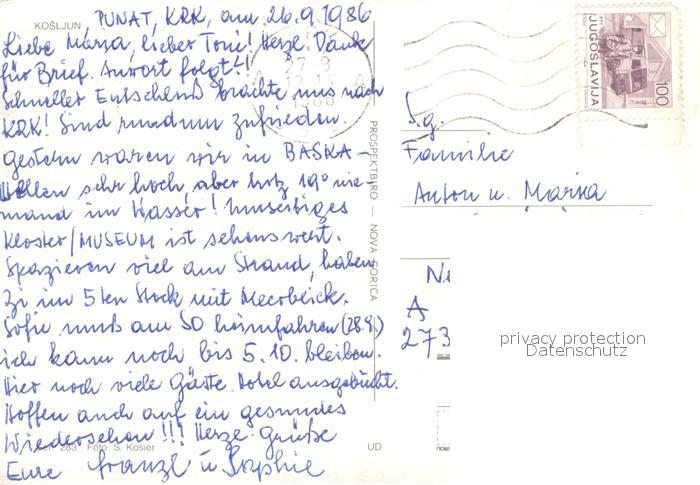 KOŠLJUN
PUNAT, KRK, am 26.9.1986
Liebe Marja, lieber Toni! Herzl. Dank
für Brief. Antwort folgt!!
Schneller Entschluß brachte uns nach
KRK! Sind rundum zufrieden.
Gestern waren wir in BASKA -
Wellen sehr hoch, aber trotz 19° nie-
mand im Wasser! Umseitiges
Kloster/MUSEUM ist sehenswert.
Spazieren viel am Strand, haben
Zi im 5ten Stock mit Meerblick.
Sofie muß am SO heimfahren (28.9.)
ich kann noch bis 5.10. bleiben.
Hier noch viele Gäste. Hotel ausgebucht.
Hoffen auch auf ein gesundes
Wiedersehen!!! Herzl. Grüße
283 Foto: S. Kosier
UD
Eure Franzl u Sophie
PROSPEKTBIRO — NOVA GORICA
JUGOSLAVIJA
100
S.g.
Familie
Anton u. Marija
A
273
privacy protection
Datenschutz